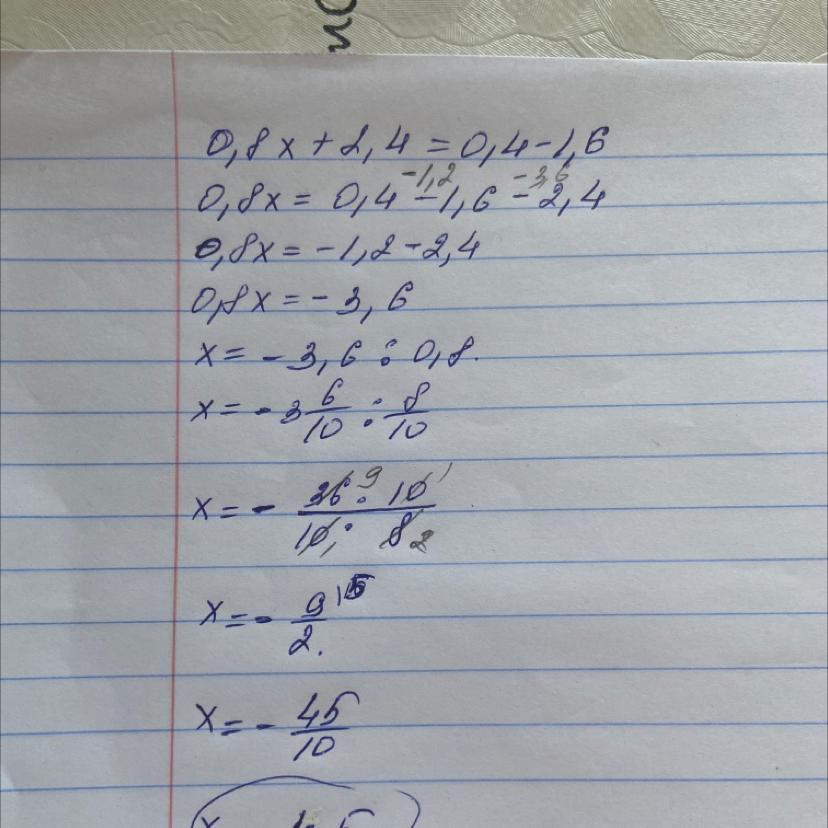 0,8x+2,4=0,4-1,6
-1,2 -3,6
0,8x= 0,4-1,6-2,4
0,8x=-1,2-2,4
0,8x=-3,6
x=-3,6:0,8.
x=-3 6/10 : 8/10
x=- 36 9 : 10 1 / 10 1 : 8 2
x=- 9/2. |5
x=- 45/10